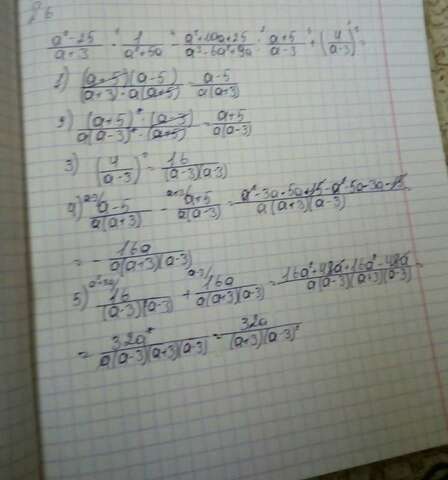 (a²-25)/(a+3) · 1/(a²+5a) - (a²+10a+25)/(a³-6a²+9a) : (a+5)/(a-3) + (4/(a-3))² =
1) ((a+5)(a-5))/((a+3)·a(a+5)) = (a-5)/(a(a+3))
2) ((a+5)²·(a-3))/(a(a-3)²·(a+5)) = (a+5)/(a(a-3))
3) (4/(a-3))² = 16/((a-3)(a-3))
4) (a-5)/(a(a+3)) - (a+5)/(a(a-3)) = (a²-3a-5a+15-a²-5a-3a-15)/(a(a+3)(a-3))
= - 16a/(a(a+3)(a-3))
5) 16/((a-3)(a-3)) + 16a/(a(a+3)(a-3)) = (16a²+48a+16a²-48a)/(a(a-3)(a+3)(a-3)) =
= 32a²/(a(a-3)(a+3)(a-3)) = 32a/((a+3)(a-3)²)